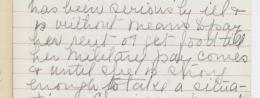 has been seriously ill &
is without means to pay
her rent or get food till
her military pay comes
& until she is strong
enough to take a situa-